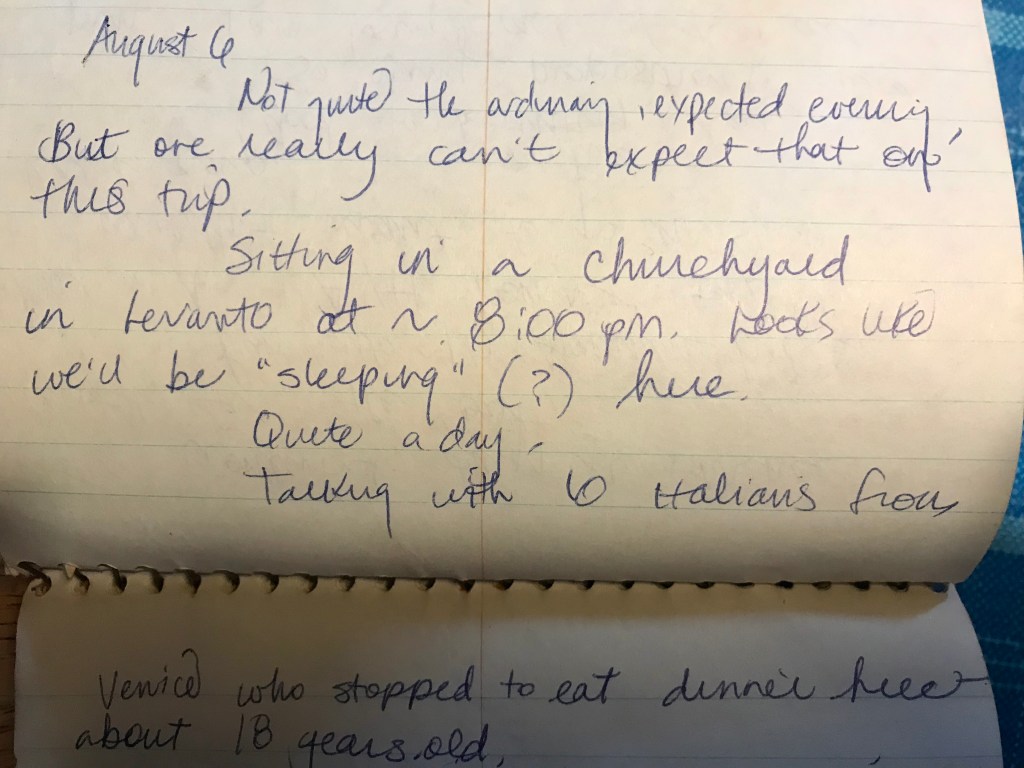 August 6
Not quite the ordinary, expected evening,
But one really can't expect that on
this trip.
Sitting in a churchyard
in Levanto at ~ 8:00 pm. Looks like
we'll be "sleeping" (?) here.
Quite a day.
Talking with 6 Italians from
Venice who stopped to eat dinner here -
about 18 years old,